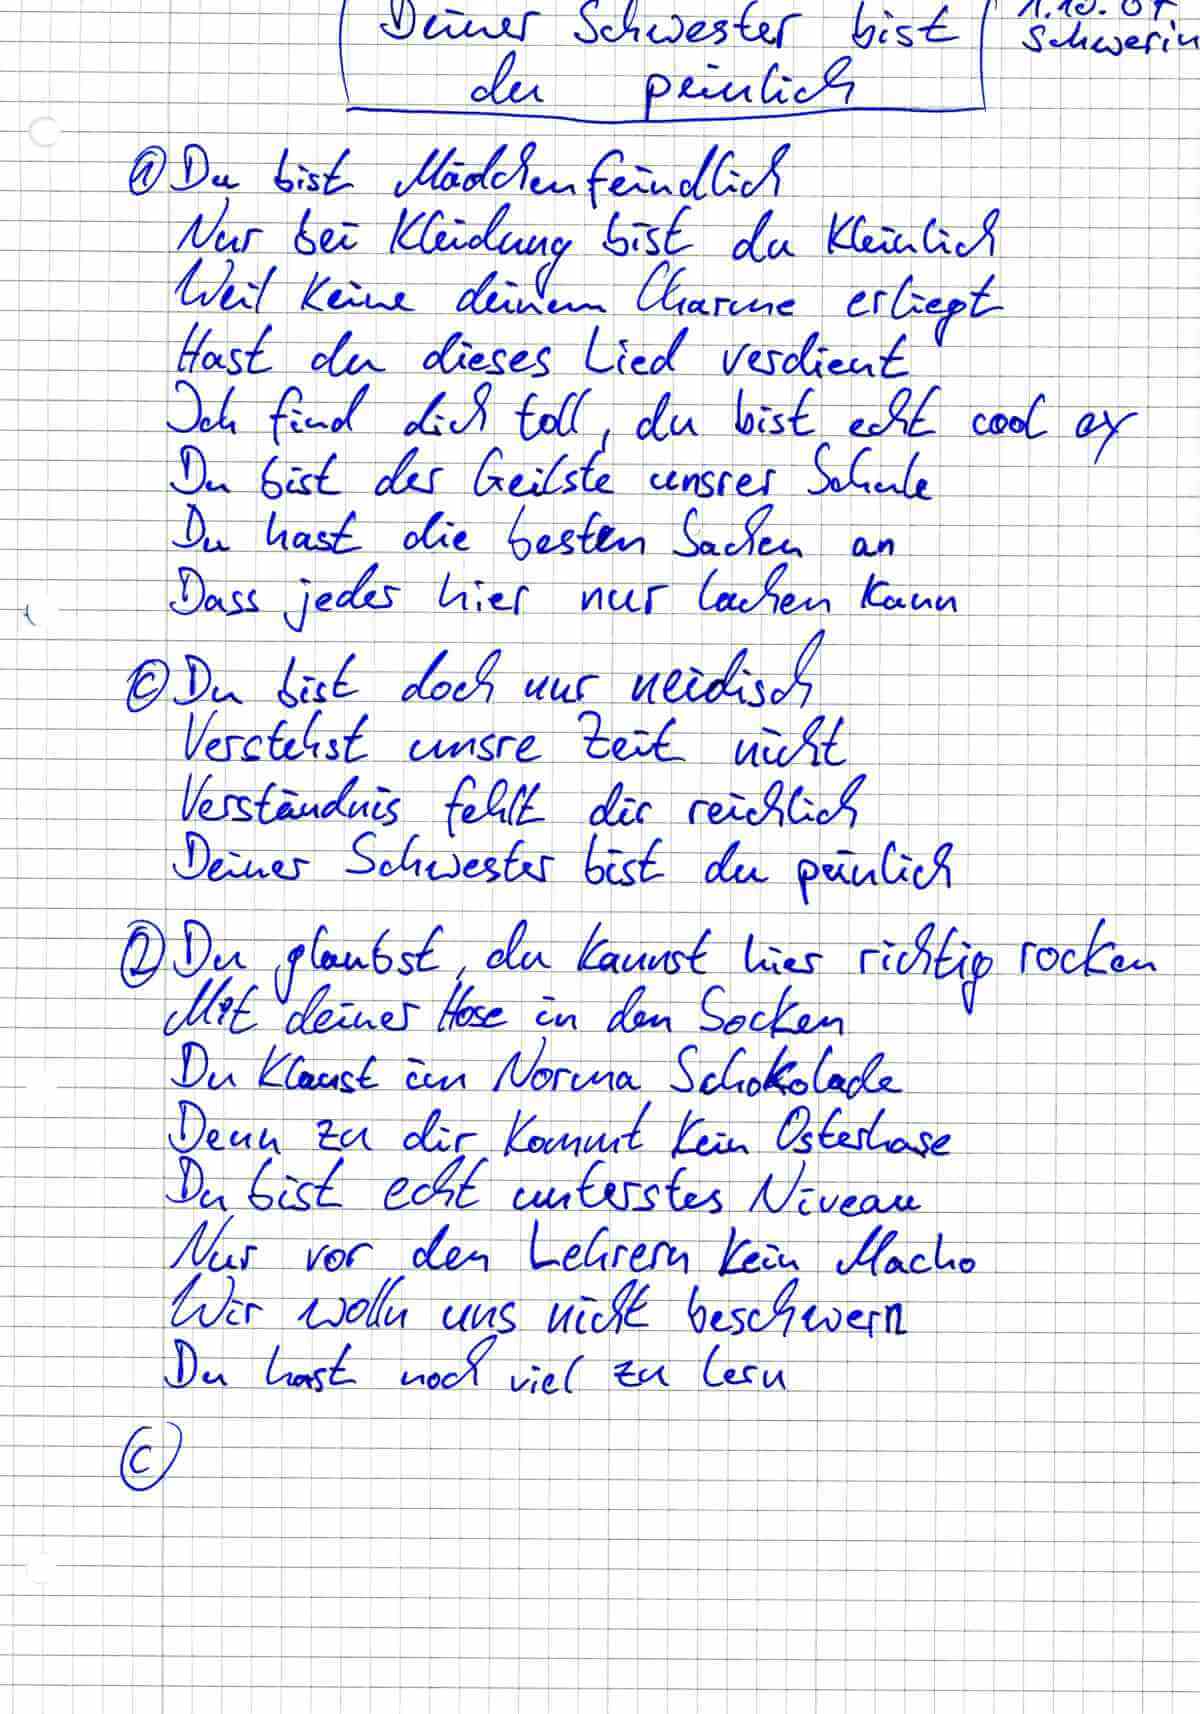 Deiner Schwester bist
du peinlich
1.10.07
Schwerin
① Du bist Mädchenfeindlich
Nur bei Kleidung bist du kleinlich
Weil keine deinem Charme erliegt
Hast du dieses Lied verdient
Ich find dich toll, du bist echt cool ey
Du bist der Geilste unsrer Schule
Du hast die besten Sachen an
Dass jeder hier nur lachen kann
Ⓒ Du bist doch nur neidisch
Verstehst unsre Zeit nicht
Verständnis fehlt dir reichlich
Deiner Schwester bist du peinlich
② Du glaubst, du kannst hier richtig rocken
Mit deiner Hose in den Socken
Du klaust im Norma Schokolade
Denn zu dir kommt kein Osterhase
Du bist echt unterstes Niveau
Nur vor den Lehrern kein Macho
Wir wolln uns nicht beschwern
Du hast noch viel zu lern
Ⓒ